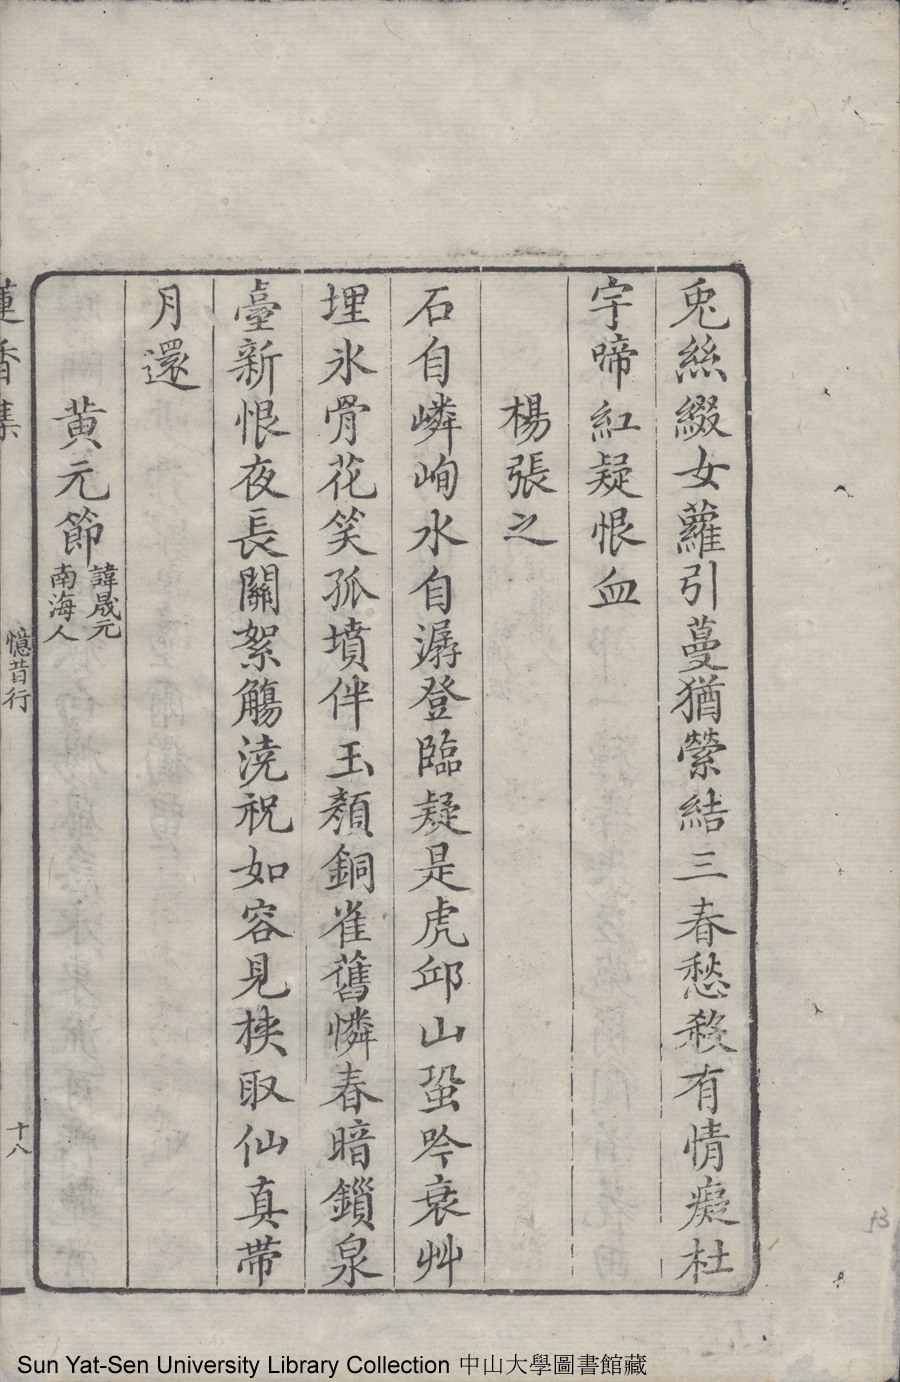 兎絲綴女蘿引蔓猶縈結三春愁殺有情癡杜
宇啼紅疑恨血
楊張之
石自嶙峋水自潺登臨疑是虎邱山蛩吟衰艸
埋氷骨花笑孤墳伴玉顏銅雀舊憐春暗鎖泉
臺新恨夜長關絮觴澆祝如容見挾取仙真帶
月還
黃元節
諱晟元
南海人
蓮香集
憶昔行
十八
Sun Yat-Sen University Library Collection 中山大學圖書館藏